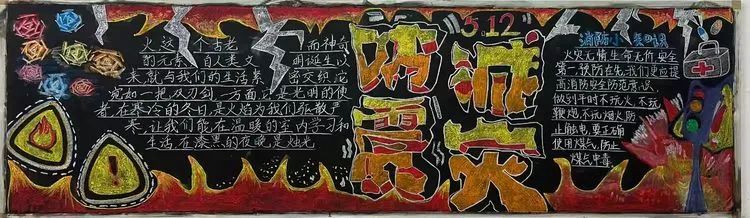 火这个古老而神奇
的元素 自人类文明诞生以
来就与我们的生活紧密交织 它
宛如一把双刃剑 一方面它是光明的使
者 在寒冷的冬日 是火焰为我们驱散严
寒 让我们能在温暖的室内学习和
生活 在漆黑的夜晚是烛光
防震
5.12
减灾
消防小知识
火灾无情 生命无价 安全
第一 预防在先 我们更应提
高消防安全防范意识
做到平时不玩火,不玩
鞭炮,不玩烟火防
止触电,要正确
使用煤气,防止
煤气中毒